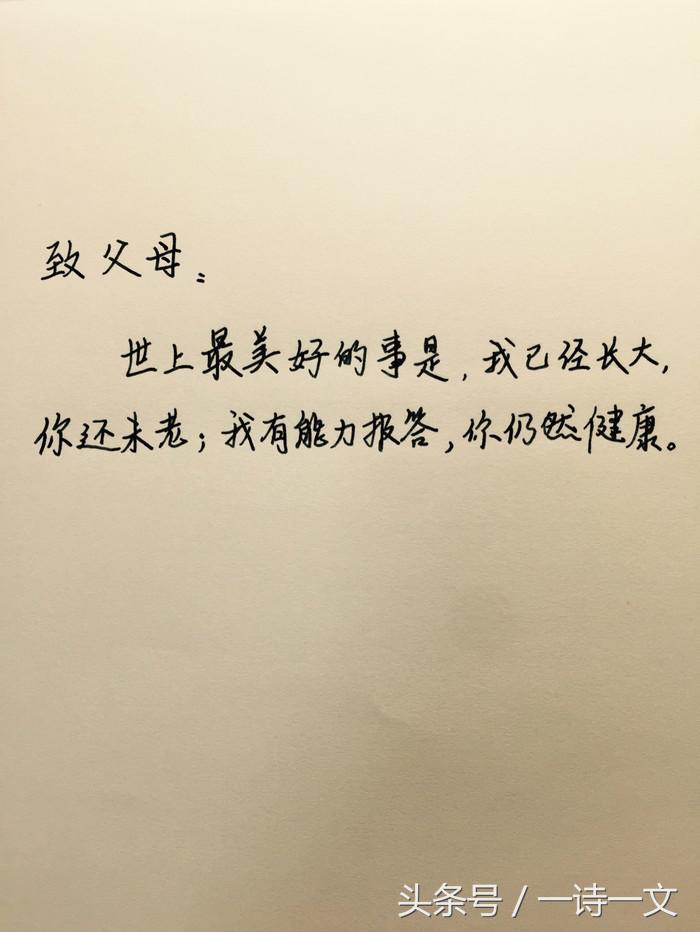 致父母：
世上最美好的事是，我已经长大，
你还未老；我有能力报答，你仍然健康。
头条号 / 一诗一文